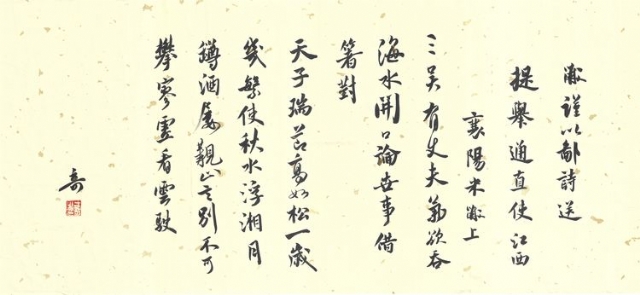 黻謹以鄙詩送
提舉通直使江西
襄陽米黻上
三吴有丈夫氣欲吞
海水開口論世事借
箸對
天子瑞節高如松一歲
幾繁使秋水浮湘月
罇酒屢親別不可
攀寥看雲駛